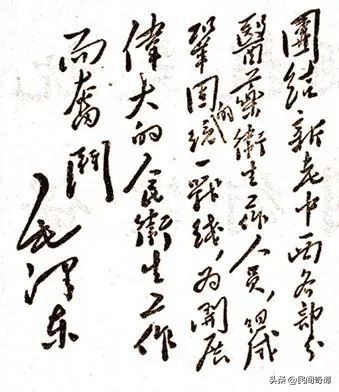 團結新老中西各部分
醫藥衛生工作人員,組成
鞏固的統一戰線,為開展
偉大的人民衛生工作
而奮鬥
毛澤東
头条 @民间奇谭